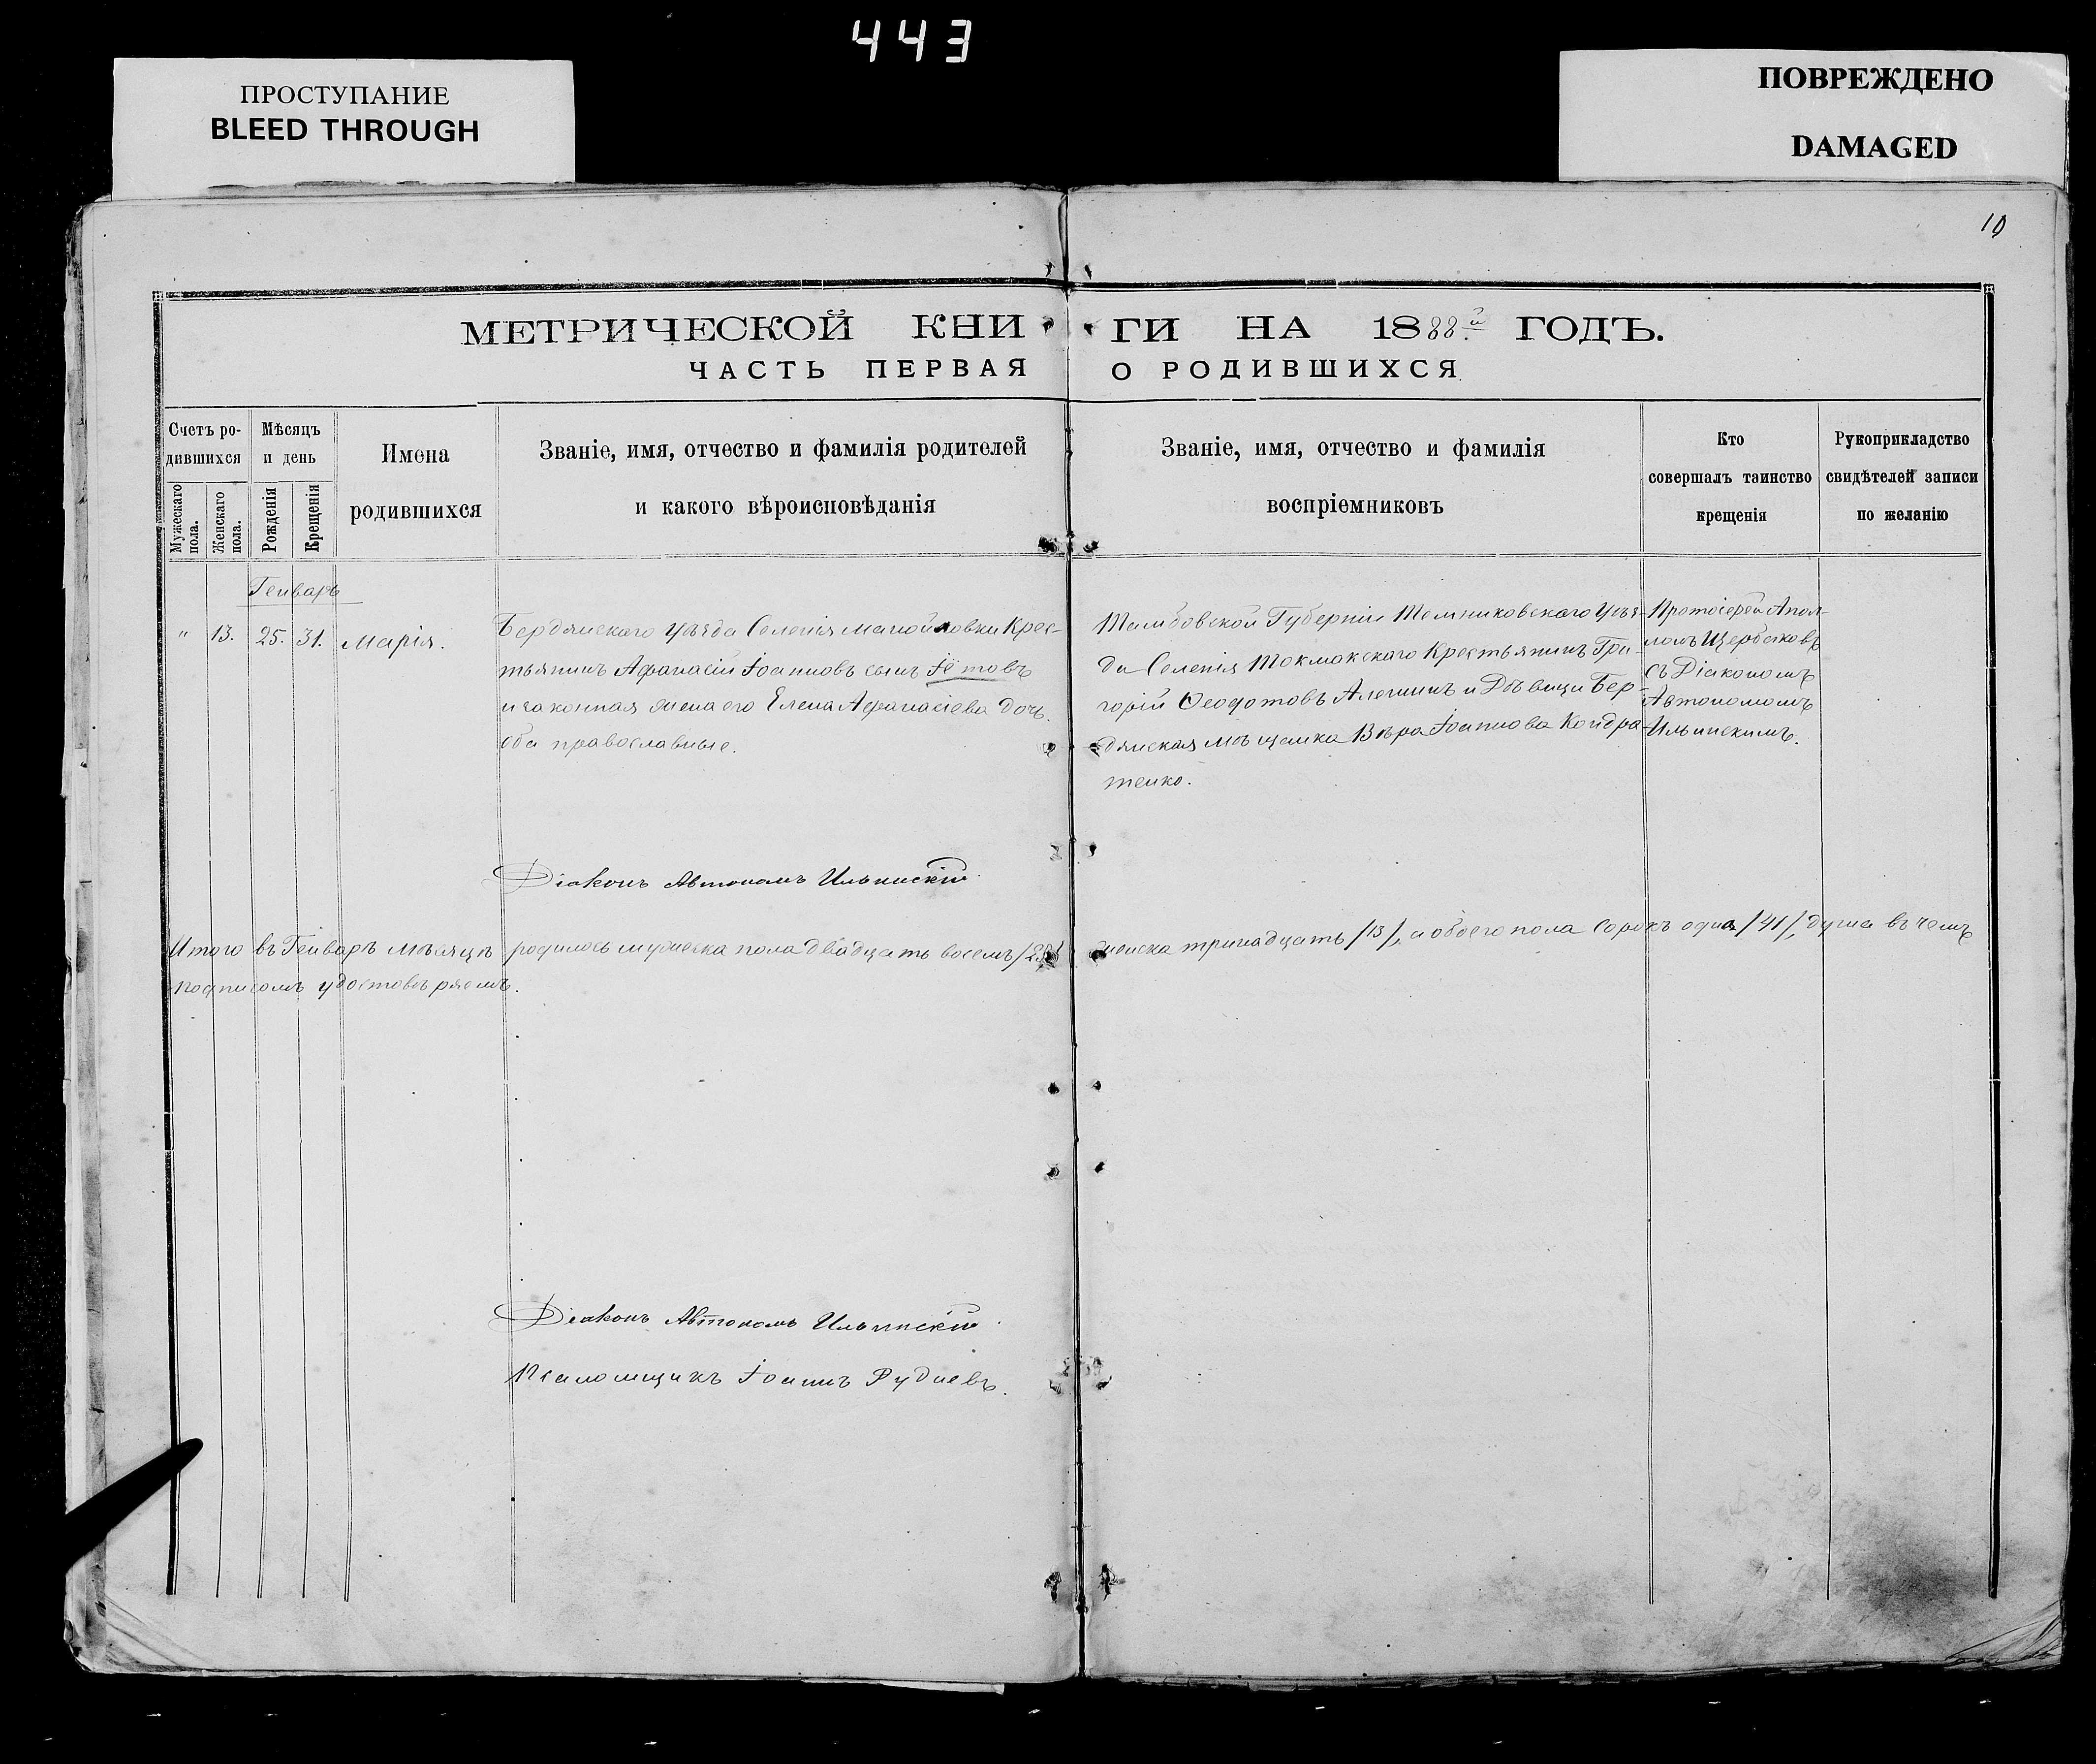 443
ПРОСТУПАНИЕ
BLEED THROUGH
ПОВРЕЖДЕНО
DAMAGED
10
МЕТРИЧЕСКОЙ КНИ ГИ НА 1888й ГОДЪ.
ЧАСТЬ ПЕРВАЯ О РОДИВШИХСЯ.
Счетъ ро-
дившихся
Мужескаго пола.
Женскаго пола.
Мѣсяцъ
и день
Рожденія
Крещенія
Имена
родившихся
Званіе, имя, отчество и фамилія родителей
и какого вѣроисповѣданія
Званіе, имя, отчество и фамилія
воспріемниковъ
Кто
совершалъ таинство
крещенія
Рукоприкладство
свидѣтелей записи
по желанію
Генварь
" 13. 25. 31. Марія.
Бердянскаго Уѣзда Селенія Манойловки Крес-
тьянинъ Афанасій Іоанновъ сынъ
и законная жена его Елена Афанасіева дочь.
оба православные.
Тамбовской Губерніи Темниковскаго Уѣз-
да Селенія Токмакскаго Крестьянинъ Гри-
горій Ѳеодотовъ Алешинъ и Дѣвица Бер-
дянская мѣщанка Вѣра Іоаннова Кондра-
тенко.
Протоіерей Апол-
лонъ Щербаковъ
съ Діакономъ
Автономомъ
Ильинскимъ.
Діаконъ Автономъ Ильинскій
Итого въ Генварѣ мѣсяцѣ родилось мужеска пола двадцать восемь /28/ женска тринадцать /13/, а обоего пола сорокъ одна /41/, душа въ чемъ
подписомъ удостовѣряемъ.
Діаконъ Автономъ Ильинскій
Псаломщикъ Іоаннъ Рудневъ.